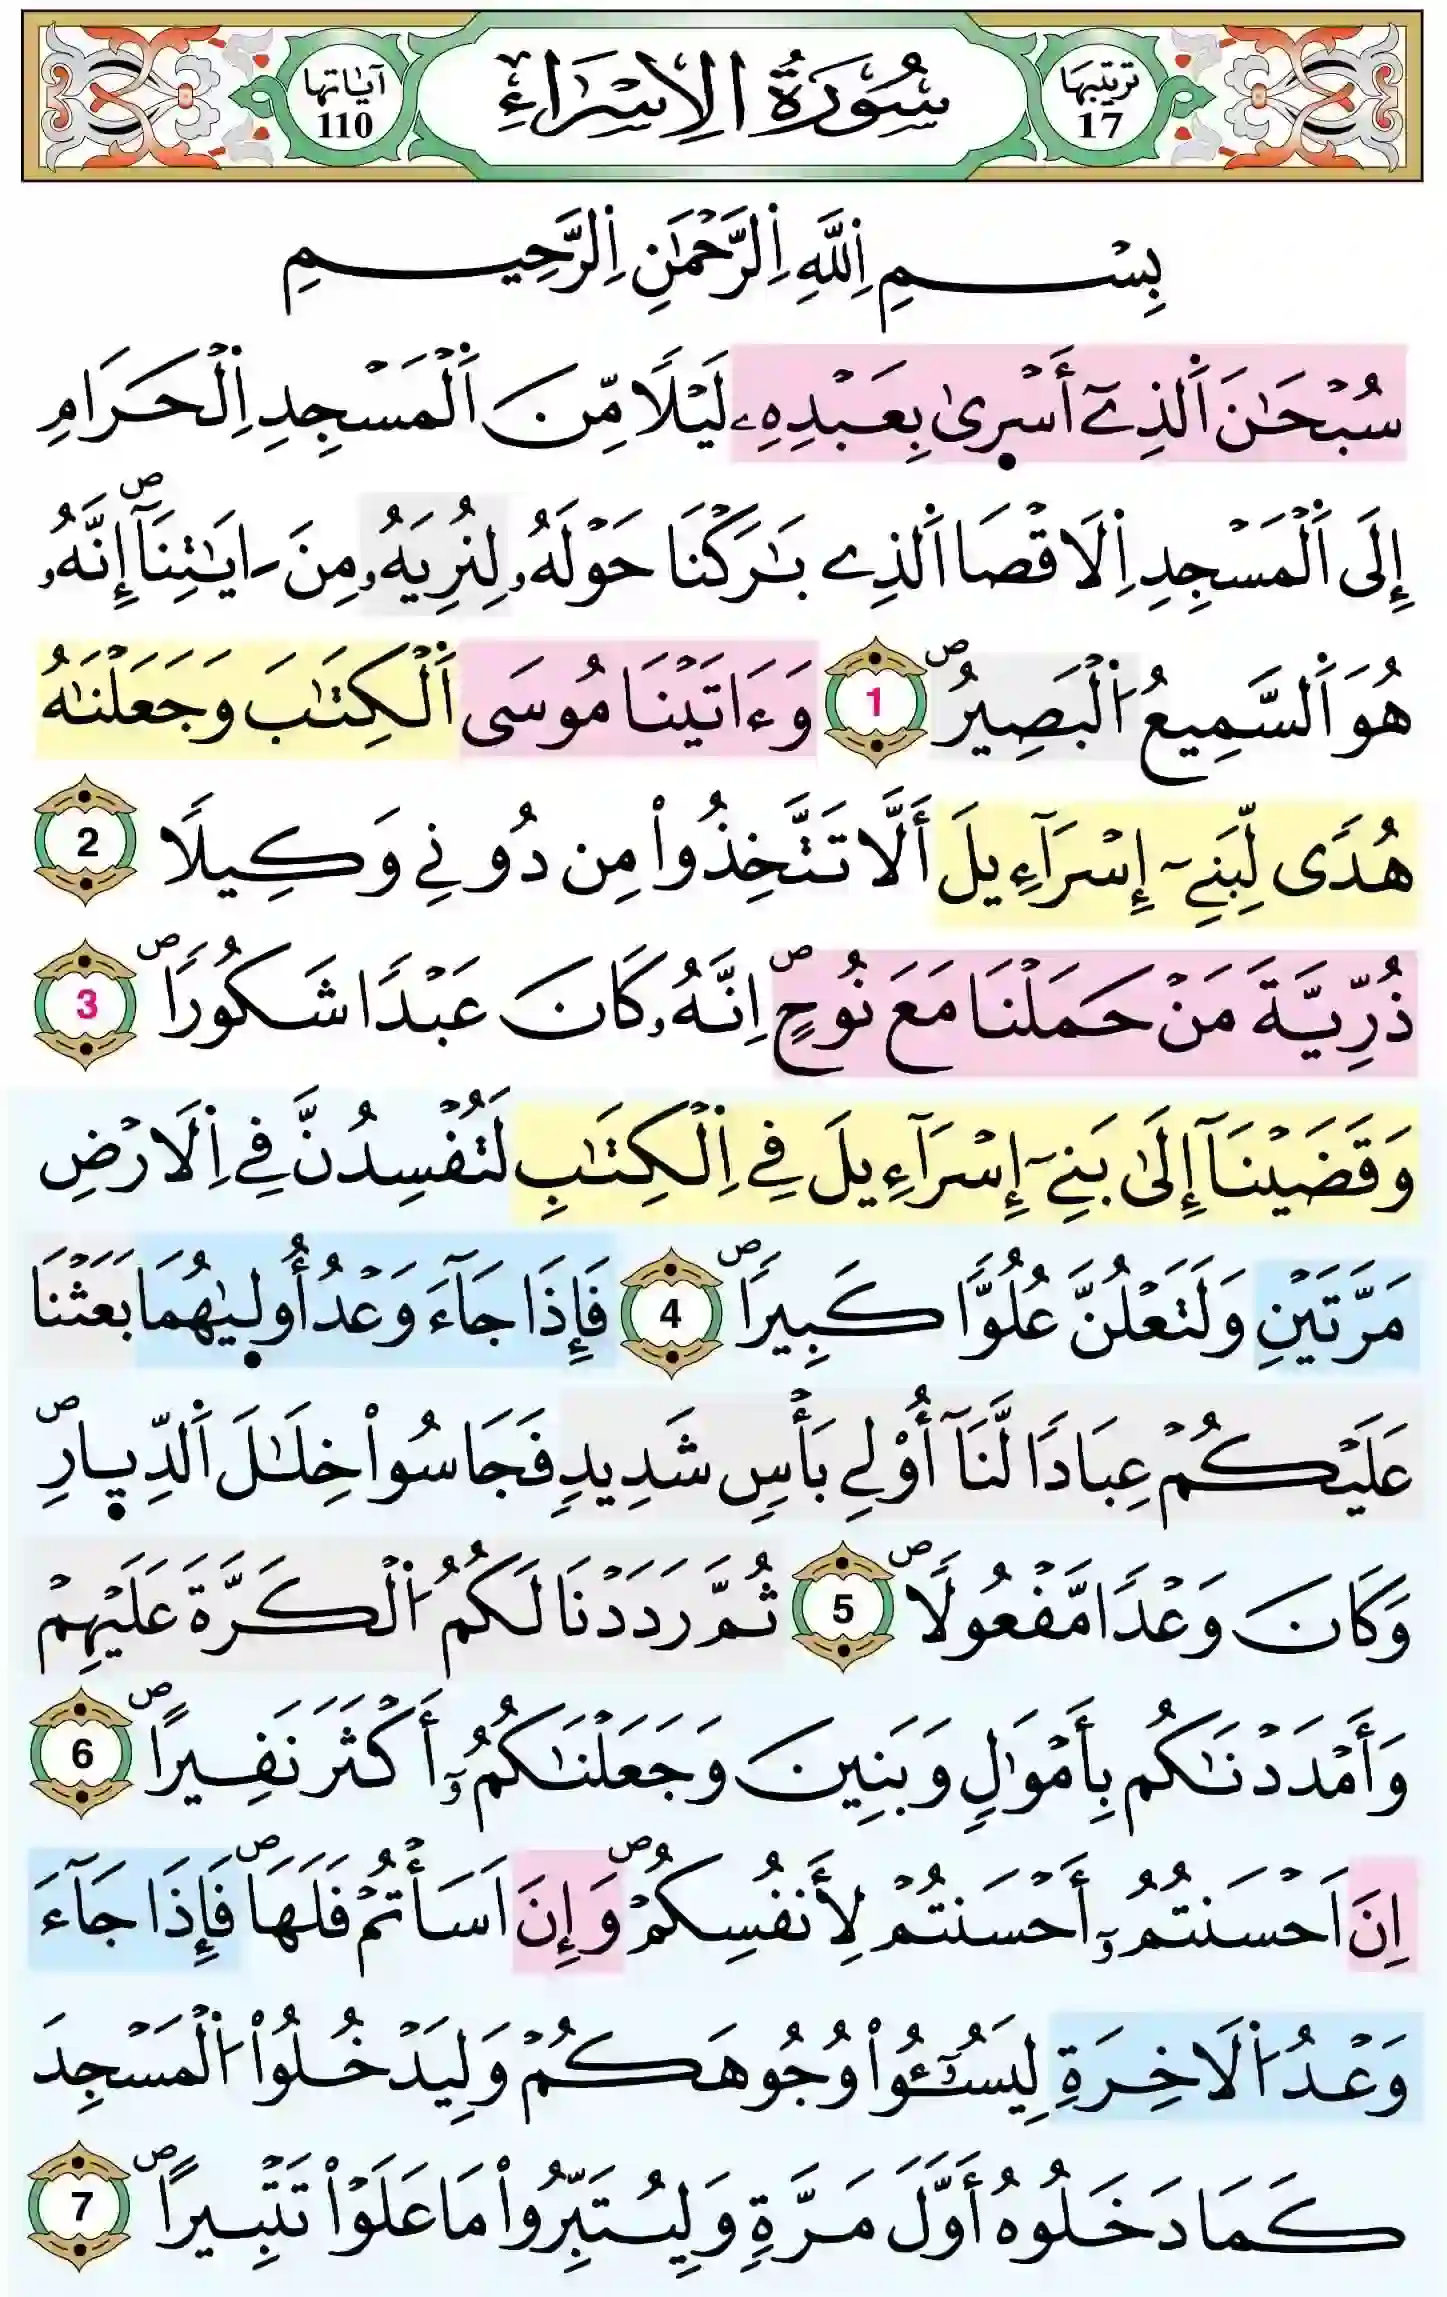 ترتيبها 17
سُورَةُ الإِسْرَاءِ
آيَاتها 110
بِسْمِ اِللَّهِ اِلرَّحْمَٰنِ اِلرَّحِيمِ
سُبْحَٰنَ اَلذِےٓ أَسْر۪يٰ بِعَبْدِهِۦ لَيْلًا مِّنَ اَلْمَسْجِدِ اِلْحَرَامِ
إِلَى اَلْمَسْجِدِ اِلَاقْصَا اَلذِے بَٰرَكْنَا حَوْلَهُۥ لِنُرِيَهُۥ مِنَ ـايَٰتِنَآۖ إِنَّهُۥ
هُوَ اَلسَّمِيعُ اُلْبَصِيرُۖ 1 وَءَاتَيْنَا مُوسَى اَلْكِتَٰبَ وَجَعَلْنَٰهُ
هُدًى لِّبَنِےٓ إِسْرَآءِيلَ أَلَّا تَتَّخِذُواْ مِن دُونِے وَكِيلًا 2
ذُرِّيَّةَ مَنْ حَمَلْنَا مَعَ نُوحٍۖ اِنَّهُۥ كَانَ عَبْدًا شَكُورًاۖ 3
وَقَضَيْنَآ إِلَىٰ بَنِےٓ إِسْرَآءِيلَ فِے اِلْكِتَٰبِ لَتُفْسِدُنَّ فِے اِلَارْضِ
مَرَّتَيْنِ وَلَتَعْلُنَّ عُلُوًّا كَبِيرًاۖ 4 فَإِذَا جَآءَ وَعْدُ أُول۪يٰهُمَا بَعَثْنَا
عَلَيْكُمْ عِبَادًا لَّنَآ أُوْلِے بَأْسٍ شَدِيدٍ فَجَاسُواْ خِلَٰلَ اَلدِّي۪ارِۖ
وَكَانَ وَعْدًا مَّفْعُولًاۖ 5 ثُمَّ رَدَدْنَا لَكُمُ اُلْكَرَّةَ عَلَيْهِمْ
وَأَمْدَدْنَٰكُم بِأَمْوَٰلٍ وَبَنِينَ وَجَعَلْنَٰكُمُۥٓ أَكْثَرَ نَفِيرًاۖ 6
اِنَ اَحْسَنتُمُۥٓ أَحْسَنتُمْ لِأَنفُسِكُمْۖ وَإِنَ اَسَأْتُمْ فَلَهَاۖ فَإِذَا جَآءَ
وَعْدُ اُلَاخِرَةِ لِيَسُـُٔواْ وُجُوهَكُمْ وَلِيَدْخُلُواْ اُلْمَسْجِدَ
كَمَا دَخَلُوهُ أَوَّلَ مَرَّةٍ وَلِيُتَبِّرُواْ مَا عَلَوْاْ تَتْبِيرًاۖ 7